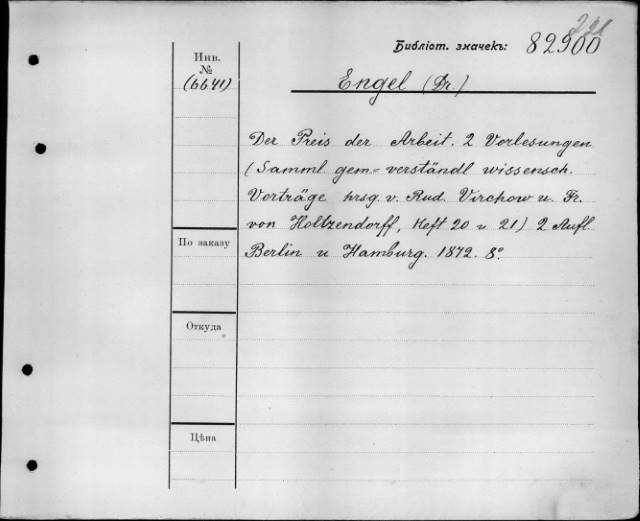 221
Библіот. значекъ: 82900
Инв.
№
(6641)
Engel (Dr.)
Der Preis der Arbeit. 2 Vorlesungen
(Samml. gem-verständl wissensch.
Vorträge hrsg. v. Rud. Virchow u. Fr.
von Holtzendorff, Heft 20 u 21) 2 Aufl.
Berlin u Hamburg. 1872. 8°.
По заказу
Откуда
Цѣна